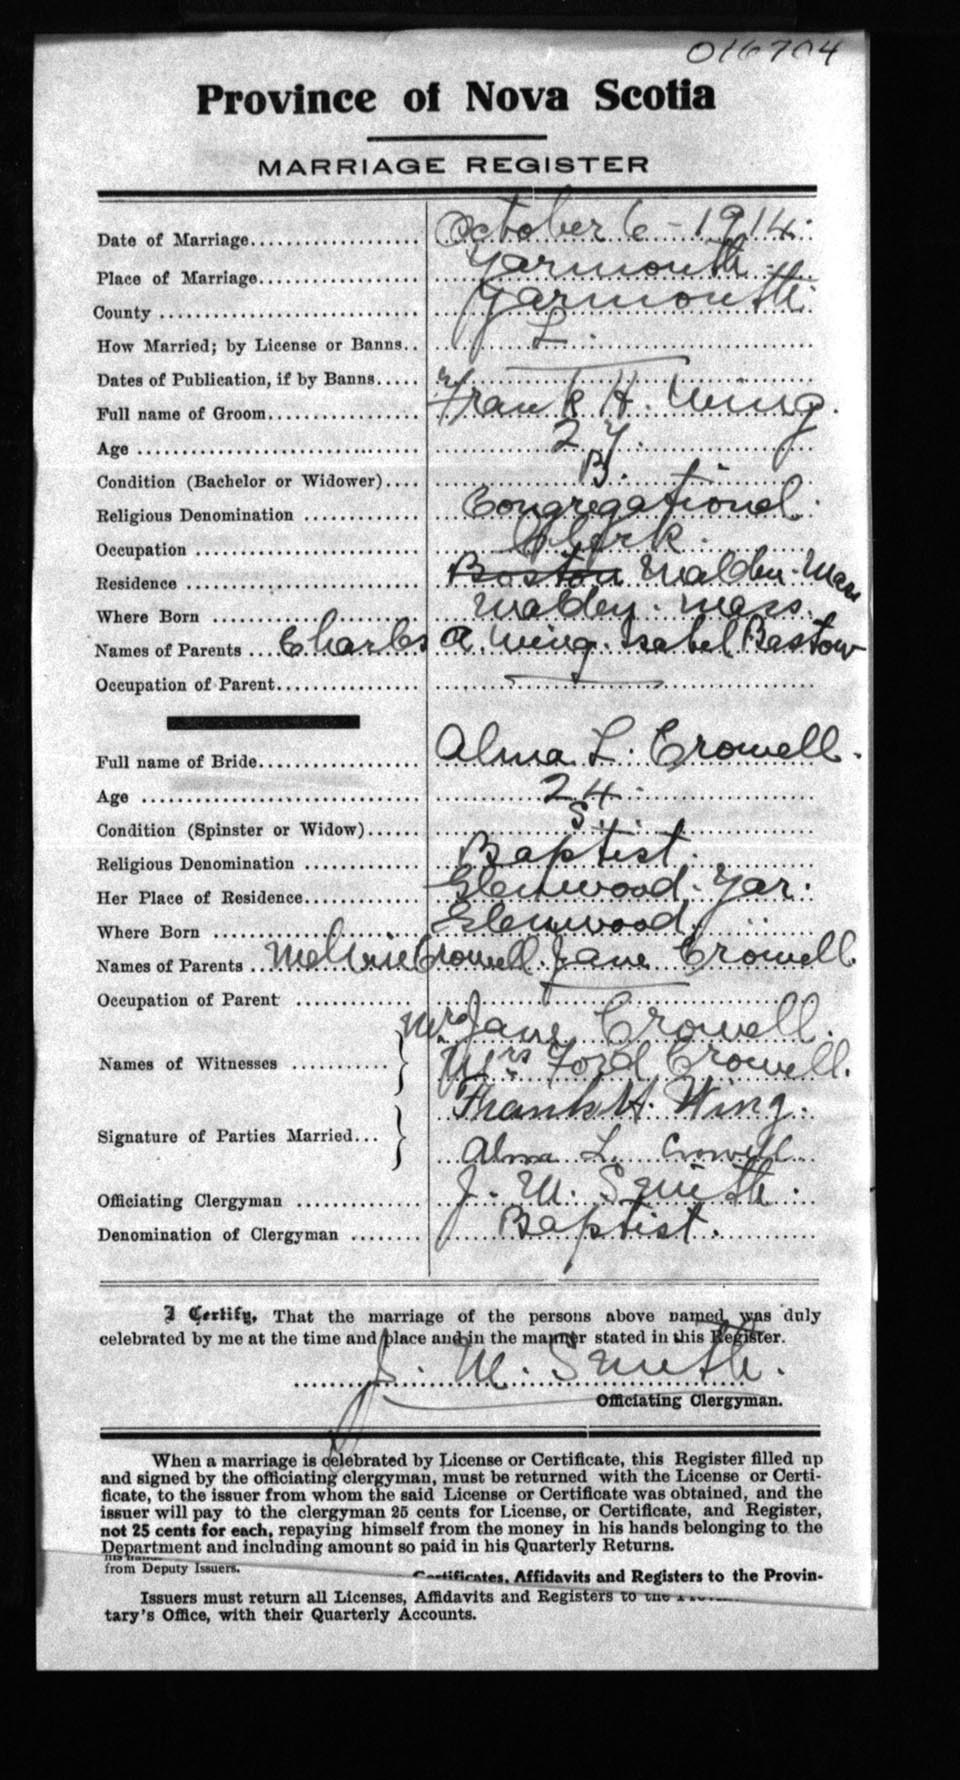 016704
Province of Nova Scotia
MARRIAGE REGISTER
Date of Marriage.................... October 6 - 1914.
Place of Marriage................... Yarmouth.
County .............................. Yarmouth.
How Married; by License or Banns.. L.
Dates of Publication, if by Banns..... —
Full name of Groom.................. Frank H. Wing.
Age ................................. 27.
Condition (Bachelor or Widower).... B.
Religious Denomination ............. Congregational.
Occupation .......................... Clerk.
Residence ........................... Boston Malden. Mass
Where Born ......................... Malden. Mass.
Names of Parents .... Charles A. Wing. Isabel Bastow
Occupation of Parent................. —
Full name of Bride................... Alma L. Crowell.
Age ................................. 24.
Condition (Spinster or Widow)...... S.
Religious Denomination ............. Baptist.
Her Place of Residence.............. Glenwood. Yar.
Where Born ......................... Glenwood.
Names of Parents .. Melvin Crowell. Jane Crowell
Occupation of Parent ............. —
Mrs Jane Crowell.
Names of Witnesses ........... } Mrs Ford Crowell.
Frank H. Wing.
Signature of Parties Married... }
Alma L. Crowell
Officiating Clergyman .............. J. W. Smith.
Denomination of Clergyman ........ Baptist.
I Certify, That the marriage of the persons above named was duly
celebrated by me at the time and place and in the manner stated in this Register.
J. W. Smith.
Officiating Clergyman.
When a marriage is celebrated by License or Certificate, this Register filled up
and signed by the officiating clergyman, must be returned with the License or Certi-
ficate, to the issuer from whom the said License or Certificate was obtained, and the
issuer will pay to the clergyman 25 cents for License, or Certificate, and Register,
not 25 cents for each, repaying himself from the money in his hands belonging to the
Department and including amount so paid in his Quarterly Returns.
from Deputy Issuers.
Certificates, Affidavits and Registers to the Provin-
Issuers must return all Licenses, Affidavits and Registers to the
tary's Office, with their Quarterly Accounts.